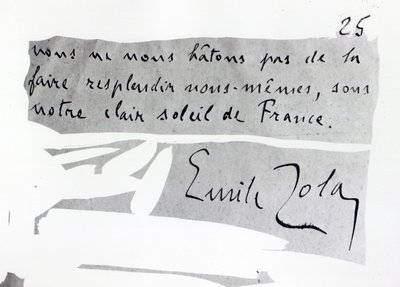 25
nous ne nous hâtons pas de la
faire resplendir nous-mêmes, sous
notre clair soleil de France.
Emile Zola